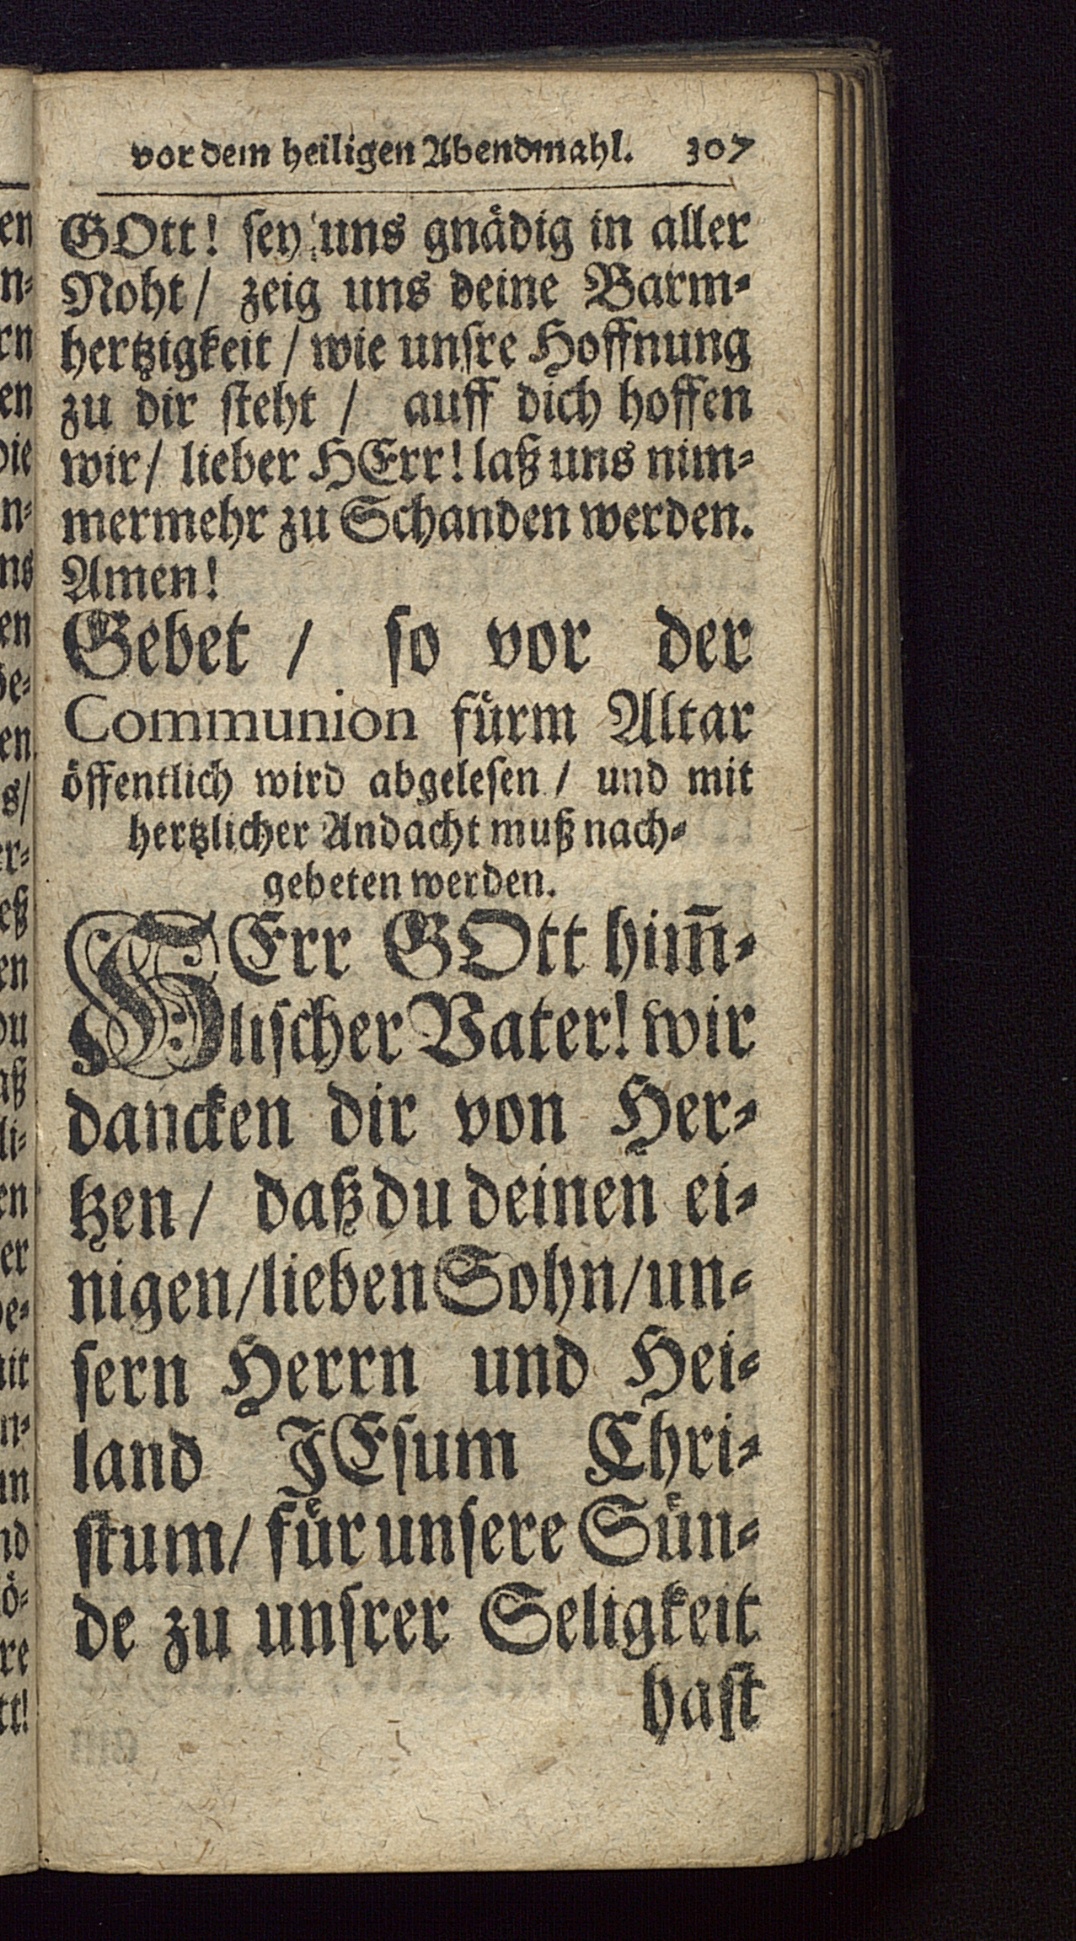 vor dem heiligen Abendmahl. 307
GOtt! sey uns gnådig in aller
Noht / zeig uns deine Barm-
hertzigkeit / wie unsre Hoffnung
zu dir steht / auff dich hoffen
wir / lieber HErr! laß uns nim-
mermehr zu Schanden werden.
Amen!
Gebet / so vor der
Communion fürm Altar
öffentlich wird abgelesen / und mit
hertzlicher Andacht muß nach-
gebeten werden.
HErr GOtt him̅-
lischer Vater! wir
dancken dir von Her-
tzen / daß du deinen ei-
nigen / lieben Sohn / un-
sern Herrn und Hei-
land JEsum Chri-
stum / für unsere Sün-
de zu unsrer Seligkeit
hast